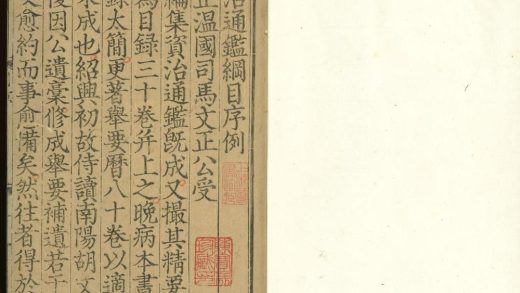 治通鑑綱目序例
正温國司馬文正公受
編集資治通鑑旣成又撮其精要
爲目錄三十卷并上之晚病本書
錄大簡更著舉要曆八十卷以適
未成也紹興初故侍讀南陽胡文
復因公遺稾修成舉要補遺若干
文愈約而事愈備矣然往者得於